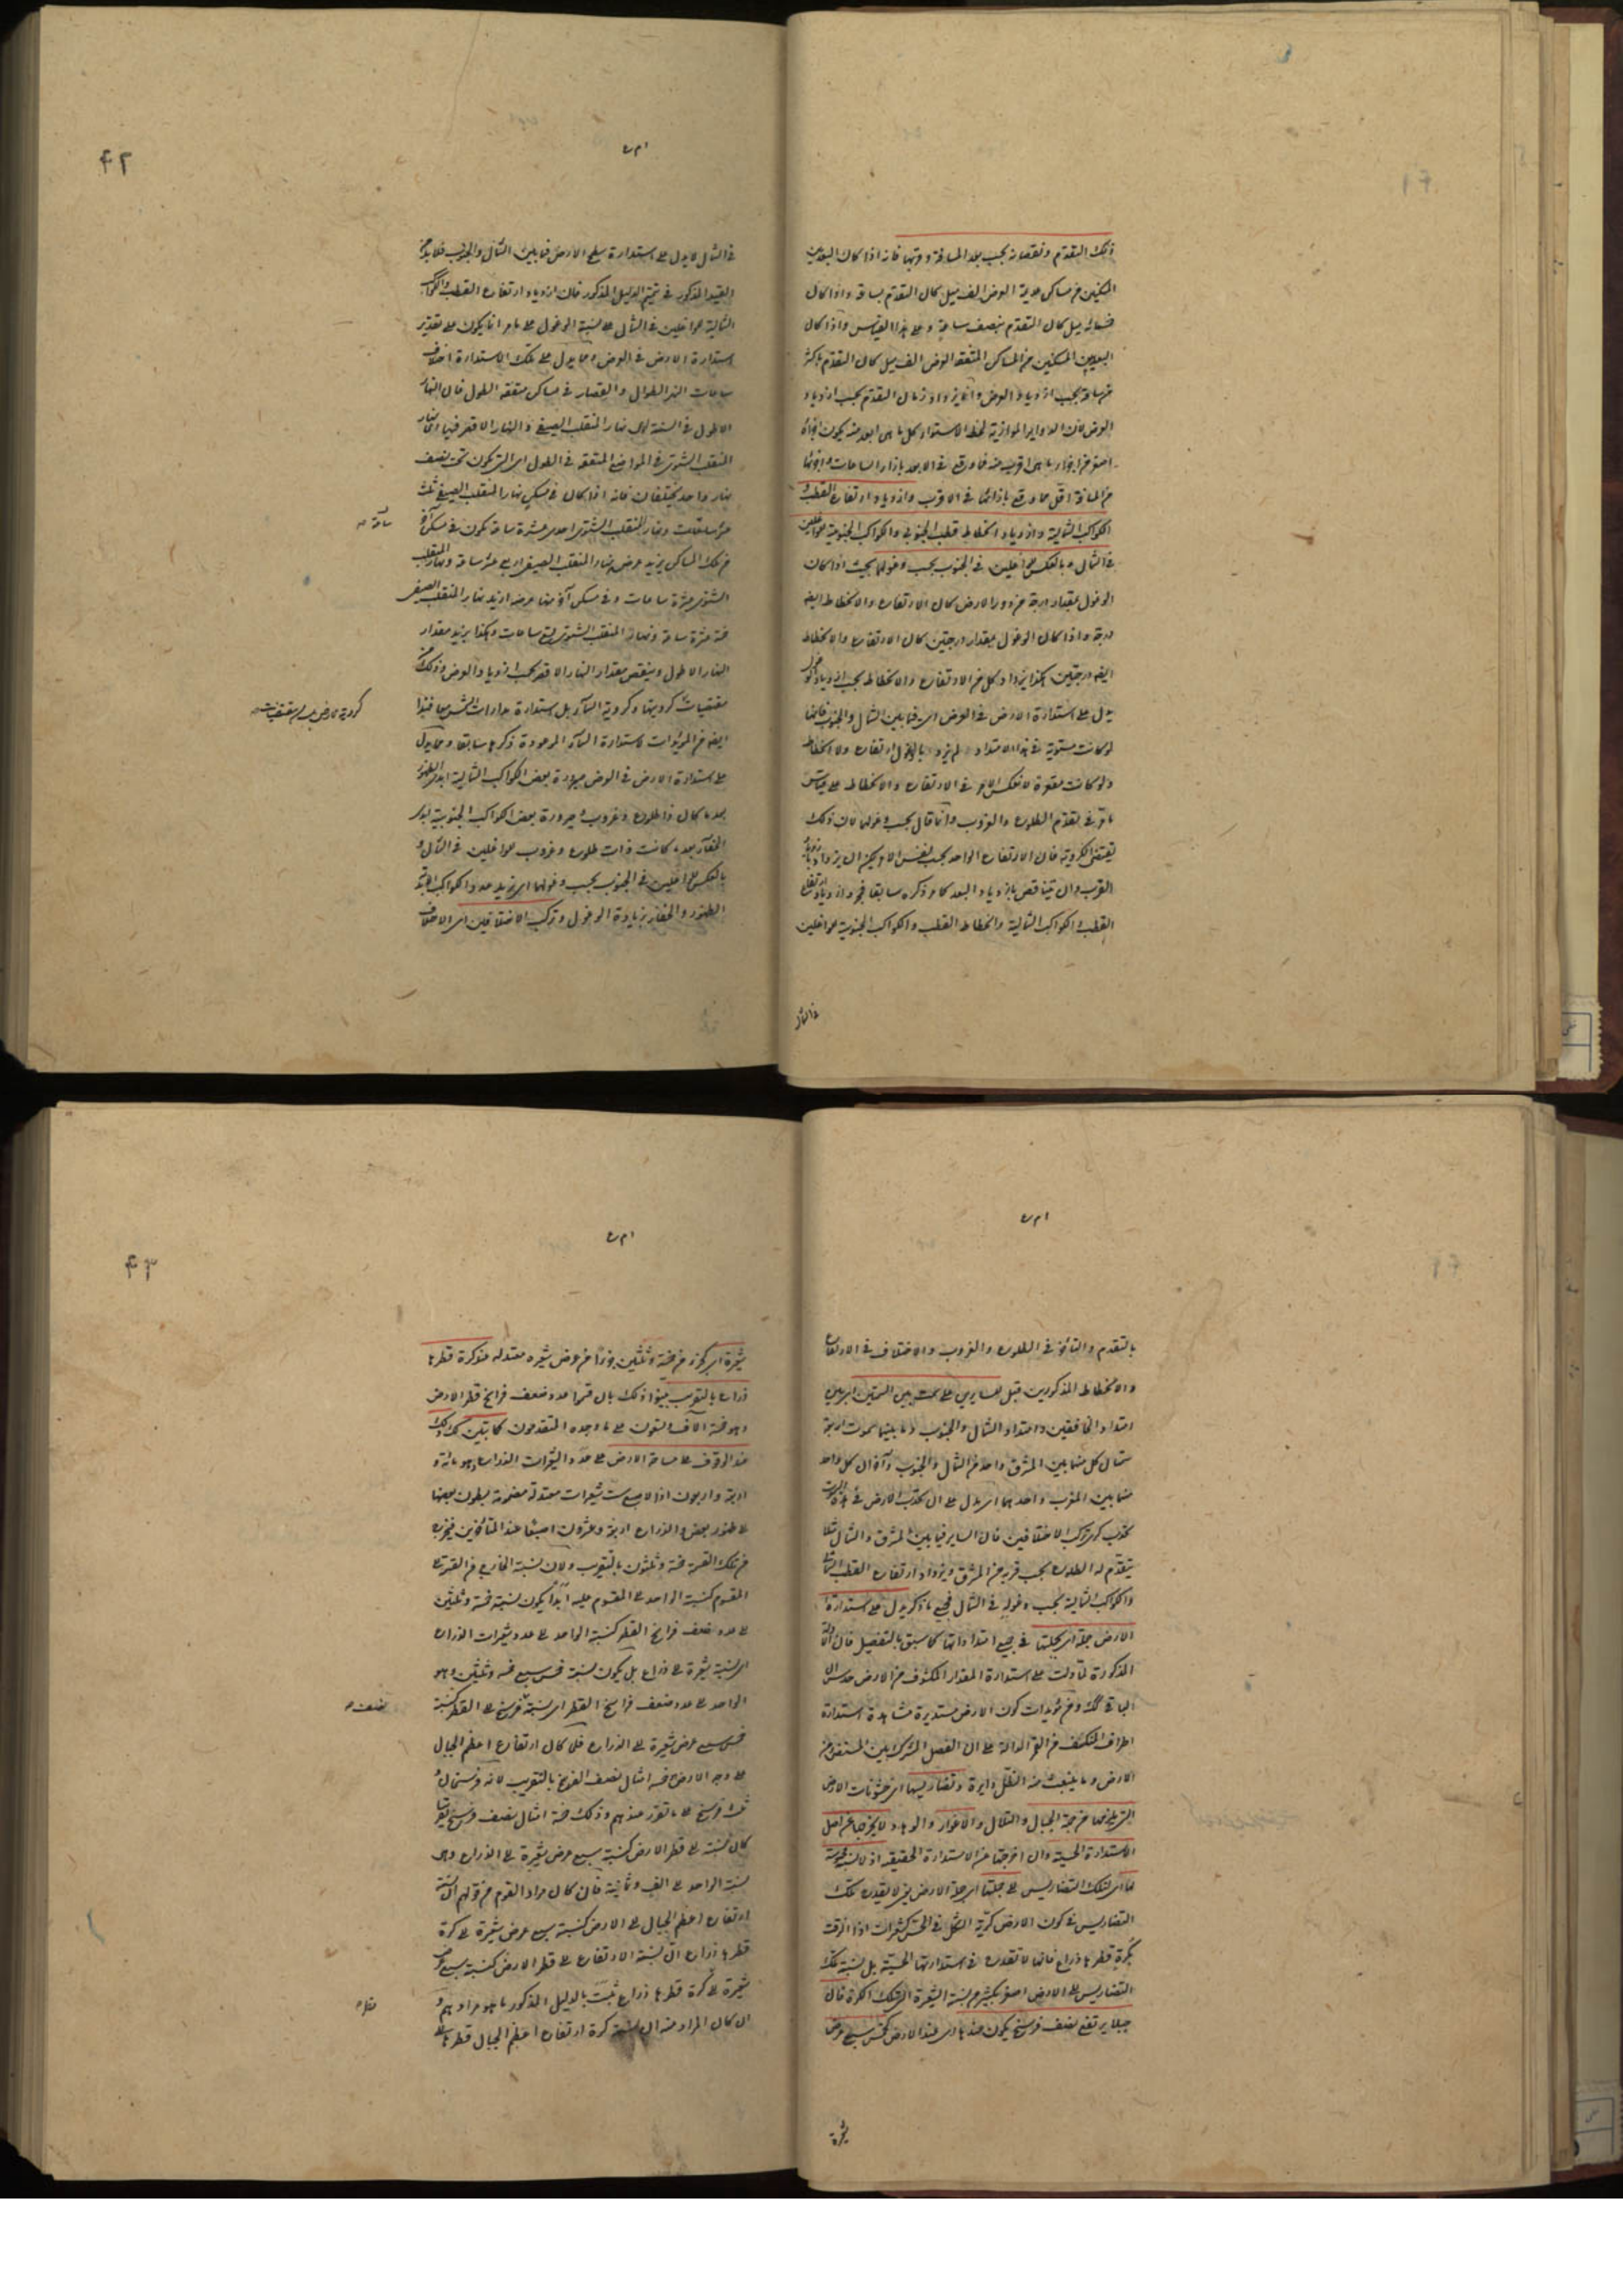 ذلك التقدم ونقصانه بحسب بعد المسافة وقربها فانه اذا كان البعد بين
المسكنين من مساكن عديمة العرض الف ميل كان التقدم بساعة واذا كان
خمسمائة ميل كان التقدم بنصف ساعة وعلى هذا القياس واذا كان
البعد بين المسكنين من المساكن المتفقة العرض الف ميل كان التقدم باكثر
من ساعة بحسب ازدياد العرض وانما يزداد زمان التقدم بحسب ازدياد
العرض لان الدواير الموازية لخط الاستواء كل ما هى ابعد منه يكون اجزاؤه
اصغر من اجزاء ما هى اقرب منه فما وقع فى الابعد بازاء الساعات واجزائها
من المسافة اقل مما وقع بازائها فى الاقرب وازدياد ارتفاع القطب و
الكواكب الشمالية وازدياد انحطاط قطب الجنوبى والكواكب الجنوبية للواغلين
فى الشمال وبالعكس للواغلين فى الجنوب بحسب وغولهما بحيث اذا كان
الوغول بمقدار درجة من دور الارض كان الارتفاع والانحطاط ايضا
درجة واذا كان الوغول بمقدار درجتين كان الارتفاع والانحطاط
ايضا درجتين هكذا يزداد كل من الارتفاع والانحطاط بحسب ازدياد الوغول
يدل على استدارة الارض فى العرض اى فيما بين الشمال والجنوب فانها
لو كانت مستوية فى هذا الامتداد لم يزد بالوغول ارتفاع ولا انحطاط
ولو كانت مقعرة لانعكس الامر فى الارتفاع والانحطاط على قياس
ما مر فى تقدم الطلوع والغروب وانما قال بحسب وغولهما لان ذلك
يقتضى الكروية فان الارتفاع الواحد بحسب نفس الامر يمكن ان يزداد بازدياد
القرب وان يتناقص بازدياد البعد كما مر ذكره سابقا فمجرد ازدياد ارتفاع
القطب والكواكب الشمالية وانحطاط القطب والكواكب الجنوبية للواغلين
فى الشمال
٤٢
فى الشمال لا يدل على استدارة سطح الارض فيما بين الشمال والجنوب فلا بد من
القيد المذكور فى تتميم الدليل المذكور فان ازدياد ارتفاع القطب والكواكب
الشمالية للواغلين فى الشمال على نسبة الوغول على ما مر انما يكون على تقدير
استدارة الارض فى العرض ومما يدل على تلك الاستدارة اختلاف
ساعات النهر الطوال والقصار فى مساكن متفقة الطول فان النهار
الاطول فى السنة اى نهار المنقلب الصيفى والنهار الاقصر فيها اى نهار
المنقلب الشتوى فى المواضع المتفقة فى الطول اى التى تكون تحت نصف
نهار واحد يختلفان فانه اذا كان فى مسكن نهار المنقلب الصيفى ثلث
عشر ساعات ونهار المنقلب الشتوى احدى عشرة ساعة يكون فى مسكن آخر
من تلك المساكن يزيد عرضه نهار المنقلب الصيفى اربع عشر ساعة ونهار المنقلب
الشتوى عشرة ساعات وفى مسكن آخر منها عرضه ازيد نهار المنقلب الصيفى
خمسة عشرة ساعة ونهار المنقلب الشتوى تسع ساعات وهكذا يزيد مقدار
النهار الاطول وينقص مقدار النهار الاقصر بحسب ازدياد العرض وذلك من
مقتضيات كرويتها وكروية السماء بل استدارة مدارات الشمس معا فهذا
ايضا من المؤيدات لاستدارة السماء الموعودة ذكرها سابقا ومما يدل
على استدارة الارض فى العرض صيرورة بعض الكواكب الشمالية ابدى الظهور
بعد ما كان ذا طلوع وغروب وصيرورة بعض الكواكب الجنوبية ابدى
الخفاء بعد ما كانت ذات طلوع وغروب للواغلين فى الشمال و
بالعكس للواغلين فى الجنوب بحسب وغولهما اى يزيد عدد الكواكب الابدية
الظهور والخفاء بزيادة الوغول وتركب الاختلافين اى الاختلاف
بالتقدم والتاخر فى الطلوع والغروب والاختلاف فى الارتفاع
والانحطاط المذكورين قبل لسايرين على سمت بين السمتين اى بين
امتداد الخافقين وامتداد الشمال والجنوب وما بينهما سموت اربعة
سمتان كل منهما بين المشرق واحد من الشمال والجنوب وآخران كل واحد
منهما بين المغرب واحدهما اى يدل على ان تحدب الارض فى هذه السموت
تحدب كرى تركب الاختلافين فان الساير فيما بين المشرق والشمال مثلا
يتقدم له الطلوع بحسب قربه من المشرق ويزداد ارتفاع القطب الشمالى
والكواكب الشمالية بحسب وغوله فى الشمال فجميع ما ذكر يدل على استدارة
الارض جملة اى بجملتها فى جميع امتداداتها كما سبق بالتفصيل فان الادلة
المذكورة لما دلت على استدارة المقدار المكشوف من الارض حدس ان
الباقى كذلك ومن مؤيدات كون الارض مستديرة مشاهدة استدارة
اطراف المنكسف من القمر الدالة على ان الفصل المشترك بين المستضئ من
الارض وما ينبعث منه الظل دايرة وتضاريسها اى خشونات الارض
التى يلزمها من جهة الجبال والتلال والاغوار والوهاد لا يخرجها عن اصل
الاستدارة الحسية وان اخرجتها عن الاستدارة الحقيقية اذ لا نسبة محسوسة
لها اى لتلك التضاريس الى جملتها اى جملة الارض يعنى لا يقدح تلك
التضاريس فى كون الارض كرية الشكل فى الحس كشعيرات اذا الزقت
بكرة قطرها ذراع فانها لا تقدح فى استدارتها الحسية بل نسبة تلك
التضاريس الى الارض اصغر بكثير من نسبة الشعيرة الى تلك الكرة فان
جبلا يرتفع نصف فرسخ يكون عندها اى عند الارض كخمس سبع عرض
شعيرة
٤٣
شعيرة اى كجزء من خمسة وثلثين جزءا من عرض شعيرة معتدلة عند كرة قطرها
ذراع بالتقريب بينوا ذلك بان قسموا عدد ضعف فراسخ قطر الارض
وهو خمسة آلاف وستون على ما وجده المتقدمون
عند الوقوف على مساحة الارض على عدد الشعيرات الذراع وهو مائة و
اربعة واربعون اذ الاصبع ست شعيرات معتدلة مضمومة بطون بعضها
الى ظهور بعض والذراع اربعة وعشرون اصبعا عند المتأخرين فيخرج
من تلك القسمة خمسة وثلثون بالتقريب ولان نسبة الخارج من القسمة الى
المقسوم كنسبة الواحد الى المقسوم عليه ابدا يكون نسبة خمسة وثلثين
الى عدد ضعف فراسخ القطر كنسبة الواحد الى عدد شعيرات الذراع
اى نسبة شعيرة الى ذراع بل يكون نسبة خمس سبع خمسة وثلثين وهو
الواحد الى عدد ضعف فراسخ القطر اى نسبة فرسخ الى القطر كنسبة
خمس سبع عرض شعيرة الى الذراع فلما كان ارتفاع اعظم الجبال
على وجه الارض خمسة امثال نصف الفرسخ بالتقريب لانه فرسخان و
ثلث فرسخ على ما تقرر عندهم وذلك خمسة امثال نصف فرسخ تقريبا
كان نسبة الى قطر الارض كنسبة سبع عرض شعيرة الى الذراع وهى
نسبة الواحد الى الف وثمانية فان كان مراد القوم من قولهم ان نسبة
ارتفاع اعظم الجبال الى الارض كنسبة سبع عرض شعيرة الى كرة
قطرها ذراع ان نسبة الارتفاع الى قطر الارض كنسبة سبع عرض
شعيرة الى كرة قطرها ذراع ثبت بالدليل المذكور ما هو مرادهم و
ان كان المراد منه ان نسبة كرة ارتفاع اعظم الجبال قطرها الى